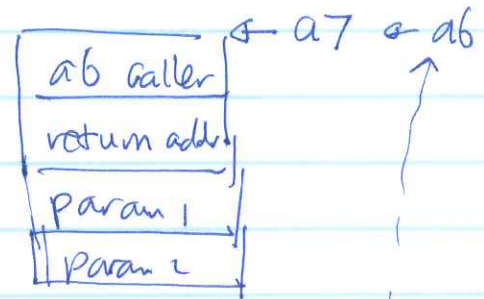 ← a7 ← a6
a6 caller
return addr.
param 1
param 2